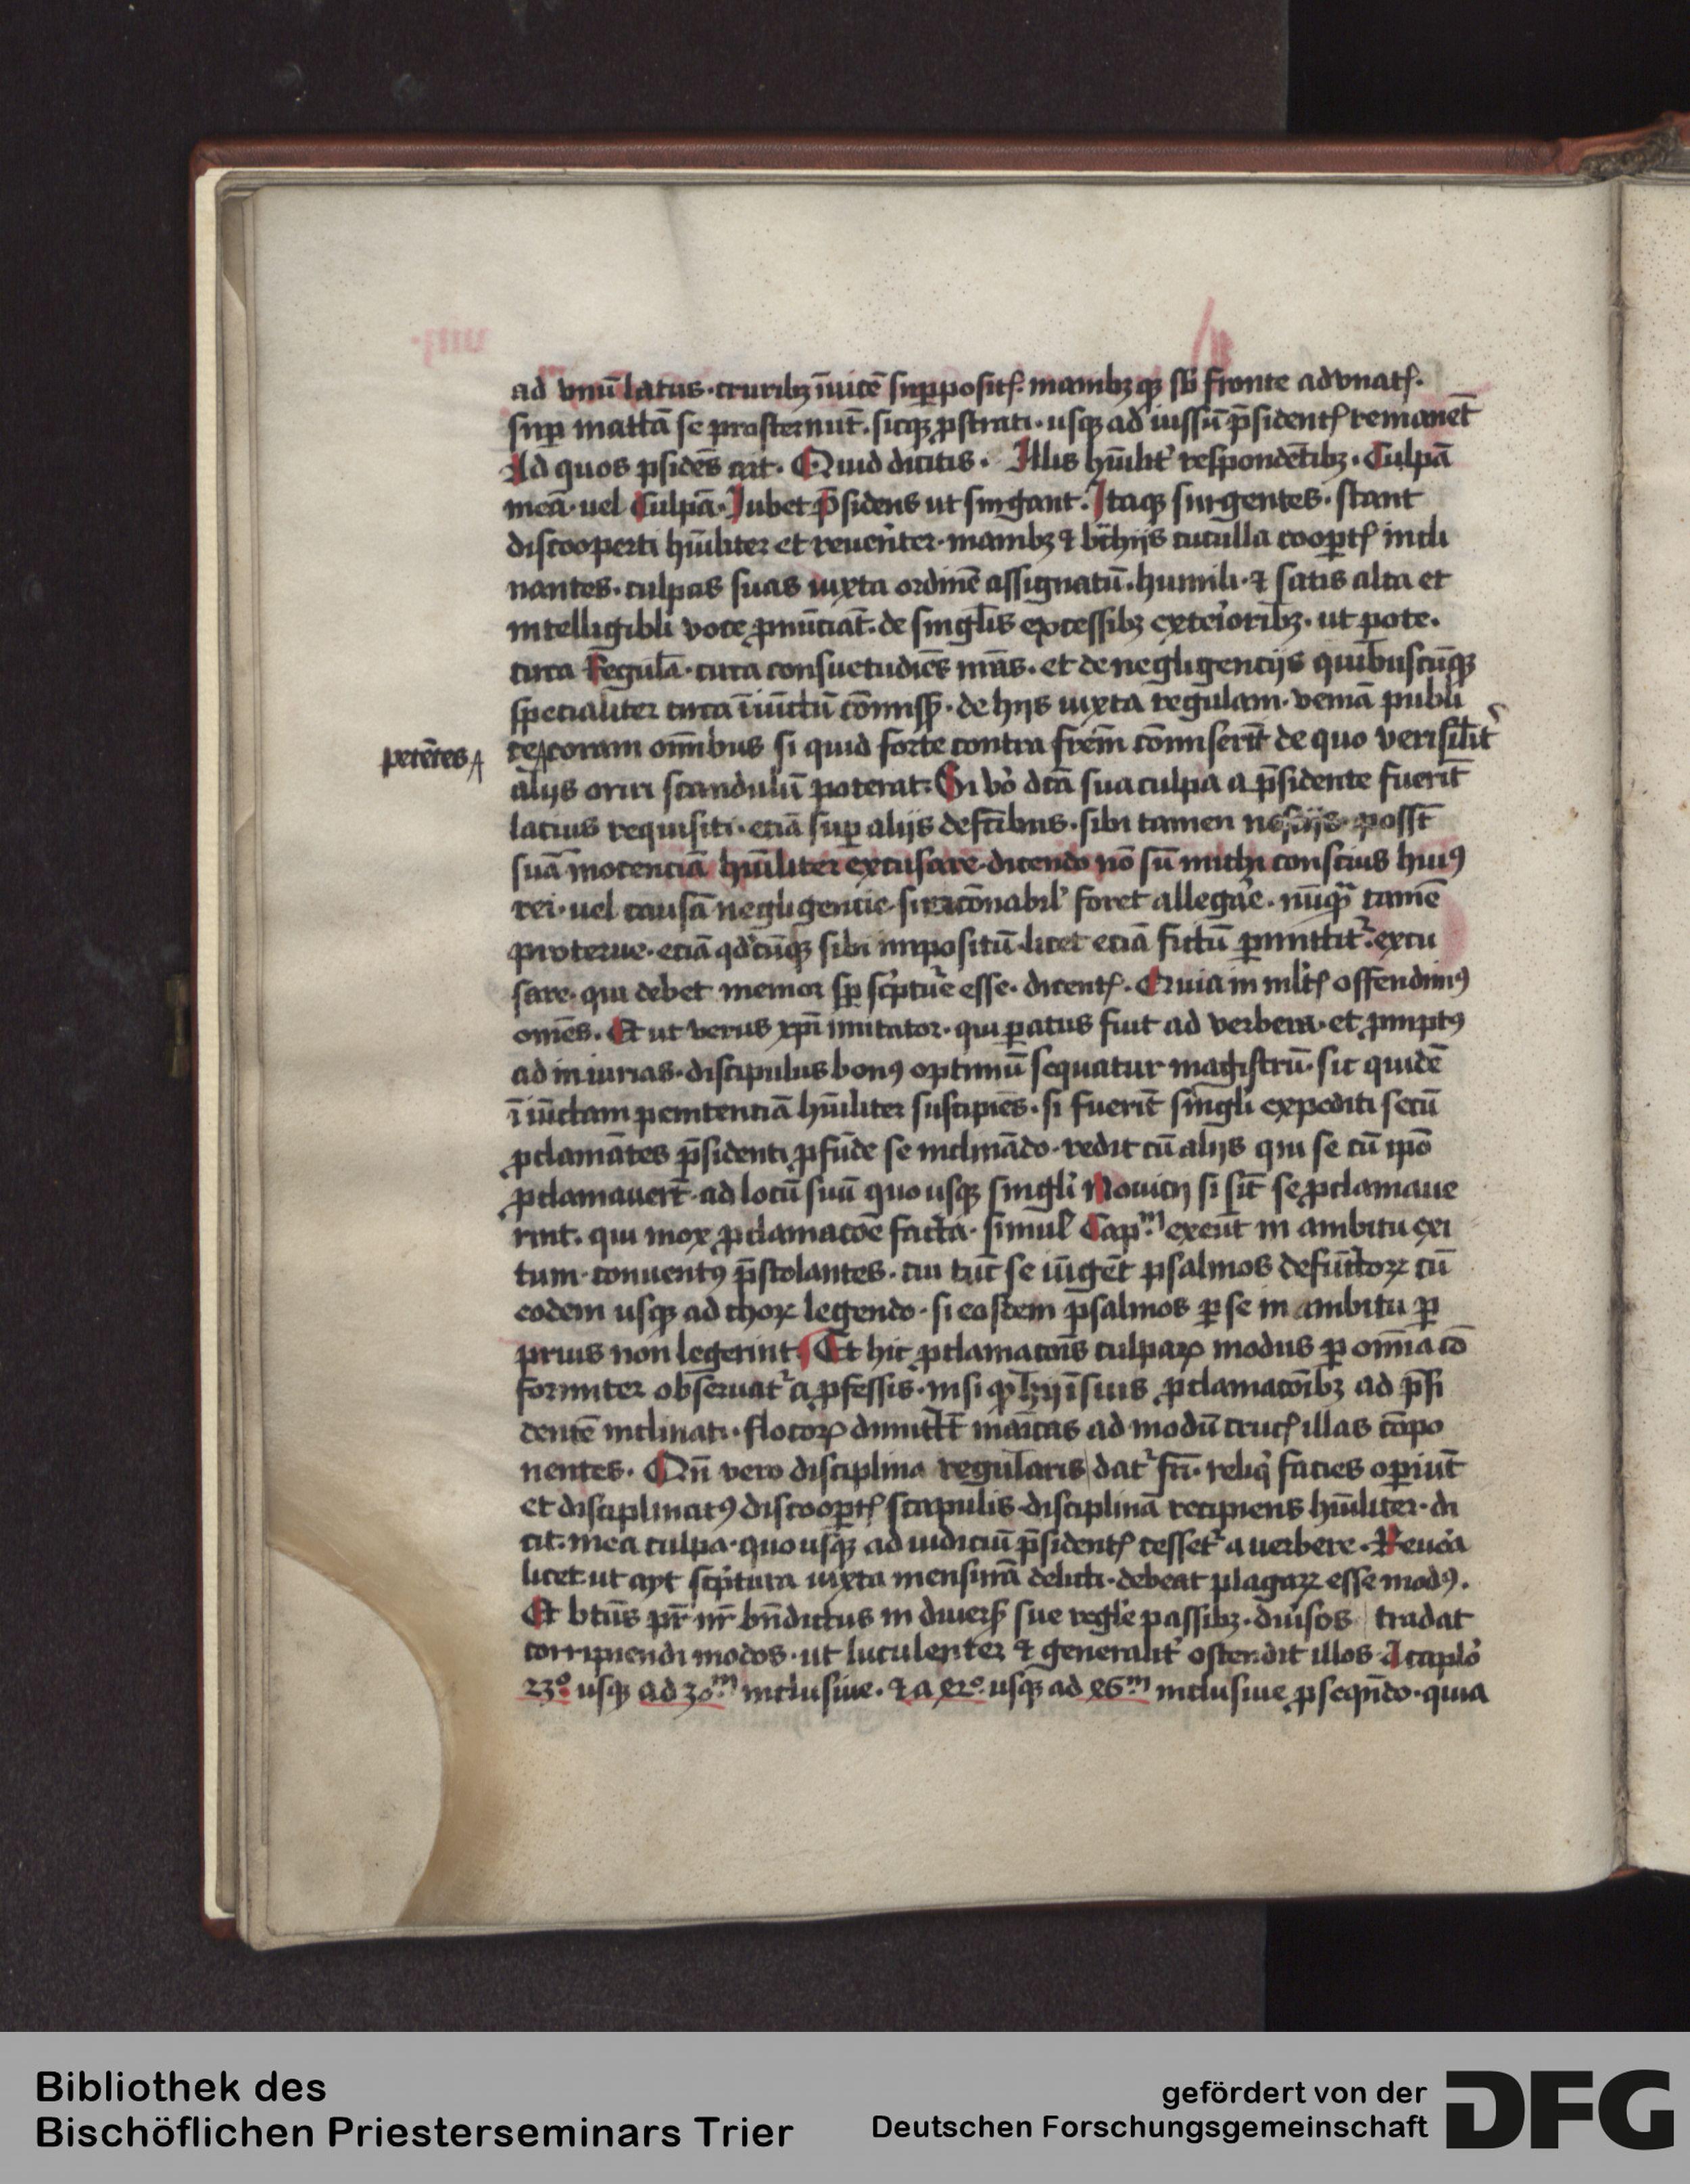 ad vnū latus. cruribꝫ īuicē suꝑpositꝭ. manibꝫqꝫ sb̄ fronte advnatꝭ.
suꝑ mattā se prosternūt. sicqꝫ ꝓstrati. usqꝫ ad iussū p̄sidentꝭ remanēt
Ad quos p̄sidēs ait. Quid dicitis. Illis hūilit᾽ respondētibꝫ. Culpā
meā. uel Culpā. Jubet p̄sidens ut surgant. Itaqꝫ surgentes. stant
discooperti hūiliter et reuerēter. manibꝫ ⁊ bͣchijs cuculla cooꝑtꝭ incli
nantes. culpas suas iuxta ordinē assignatū. humili. ⁊ satis alta et
intelligibli voce ꝓnūciāt. de singlīs excessibꝫ exterioribꝫ. ut pote.
circa Regulā. circa consuetudiēs nr̄as. et de negligencijs quibuscūqꝫ
specialiter circa īiūctū cōmissꝭ. de hijs iuxta regulam. veniā publi
petētes
ce coram om̄ibus si quid forte contra frēm cōmiserīt de quo verisilīt᾽
alijs oriri scandulū poterat. Si vͦo dcā sua culpa a p̄sidente fuerīt
lacius requisiti. eciā suꝑ alijs defctībus. sibi tamen possīt
suā inocenciā hūiliter excusare. dicendo nō sū michi conscius huiꝰ
rei. uel causā negligencie. si racōnabil᾽ foret allegare. nūqͣ tamē
proterue. eciā qd᾽cūqꝫ sibi impositū. licet eciā fictū ꝑmittit᾽. excu
sare. qui debet memor sꝑ sc᾽pture esse. dicentꝭ. Quia in ml᾽tꝭ offendimꝰ
omēs. Et ut verus xp̄i imitator. qui ꝑatus fuit ad verbera. et ꝓmptꝰ
ad iniurias. discipulus bonꝰ optimū sequatur magistrū. sic quidē
īiūctam penitenciā hūiliter suscipiēs. si fuerīt singl᾽i expediti secū
ꝓclamātes p̄sidenti ꝓfūde se inclinādo. redit cū alijs qui se cū ip̄o
ꝓclamauerīt. ad locū suū quousqꝫ singl᾽i Nouicij si sīt se ꝓclamaue
rint. qui mox ꝓclamacōe facta. simul Capᵐ exeūt in ambitu exi
tum. conuentꝰ p̄stolantes. cui tūc se iūgēt psalmos defūctoꝝ cū
eodem usqꝫ ad choꝝ legendo. si eosdem psalmos ꝑ se in ambitu ꝑ
prius non legerint. Et hic ꝓclamacōis culpaꝝ modus ꝑ om̄ia cō
formiter obseruat᾽ a ꝓfessis. nisi qͩ hij ī suis ꝓclamacōibꝫ ad p̄si
dentē inclinati. flocoꝝ dimittūt māicas ad modū crucꝭ illas cōpo
nentes. Qn̄ vero disciplina regularis dat᾽ frī. reliqͥ facies oꝑiūt
et disciplinatꝰ discooꝑtꝭ scapulis. disciplinā recipiens hūiliter. di
cit. mea culpa. quousqꝫ ad iudiciū p̄sidentꝭ cesset᾽ a verbere. Reuͣca
licet ut ayt scp̄tura iuxta mensurā delicti. debeat plagaꝝ esse modꝰ.
Et btūs pr̄ nr̄ bn̄dictus in diuersꝭ sue regl᾽e passibꝫ. diūsos tradat
corripiendi modos. ut luculenter ⁊ generalit᾽ ostendit illos. A caplō
23ͦ usqꝫ ad 30ᵐ inclusiue. ⁊ a 42ͦ usqꝫ ad 46ᵐ inclusiue ꝓseqn̄do. quia
Bibliothek des
Bischöflichen Priesterseminars Trier
gefördert von der
Deutschen Forschungsgemeinschaft
DFG